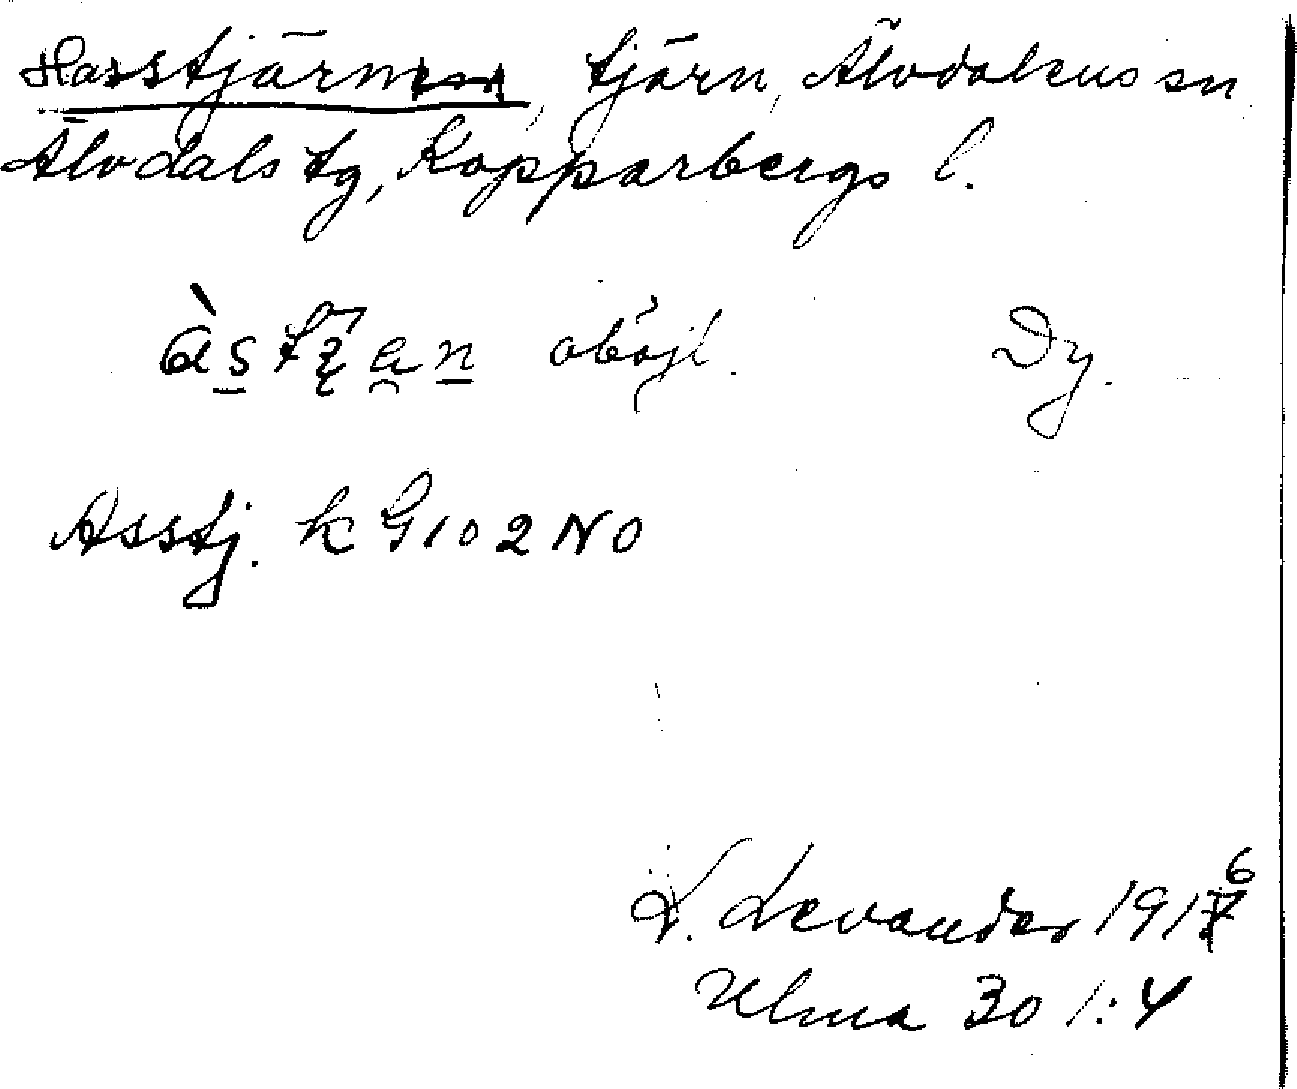 Hasstjärnen, tjärn, Älvdalens sn
Älvdals tg, Kopparbergs l.
oböjl. Dy.
Asstj. k G 102 NO
L. Levander 1916
Ulma 301:4